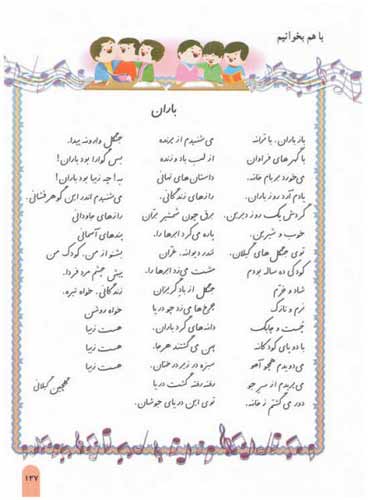 با هم بخوانیم
باران
باز باران، با ترانه
با گهرهای فراوان
می‌خورد بر بام خانه.
یادم آرد روز باران.
گردش یک روز دیرین.
خوب و شیرین.
توی جنگل‌های گیلان.
کودکی ده ساله بودم
شاد و خرّم
نرم و نازک
چست و چابک
با دو پای کودکانه
می‌دویدم همچو آهو
می‌پریدم از سر جو
دور می‌گشتم ز خانه.
می‌شنیدم از پرنده
از لب باد وزنده
داستان‌های نهانی
رازهای زندگانی.
برق چون شمشیر برّان
پاره می‌کرد ابرها را.
تندر دیوانه، غرّان
مشت می‌زد ابرها را.
جنگل از باد گریزان
چرخ‌ها می‌زد چو دریا
دانه‌های گرد باران.
پهن می‌گشتند هر جا.
سبزه در زیر درختان.
رفته رفته گشت دریا
توی این دریای جوشان.
جنگل وارونه پیدا.
بس گوارا بود باران!
به! چه زیبا بود باران!
می‌شنیدم اندر این گوهرفشانی.
رازهای جاودانی
پندهای آسمانی
بشنو از من، کودک من
پیش چشم مرد فردا.
زندگانی، خواه تیره.
خواه روشن
هست زیبا
هست زیبا
هست زیبا
گلچین گیلانی
۱۲۷